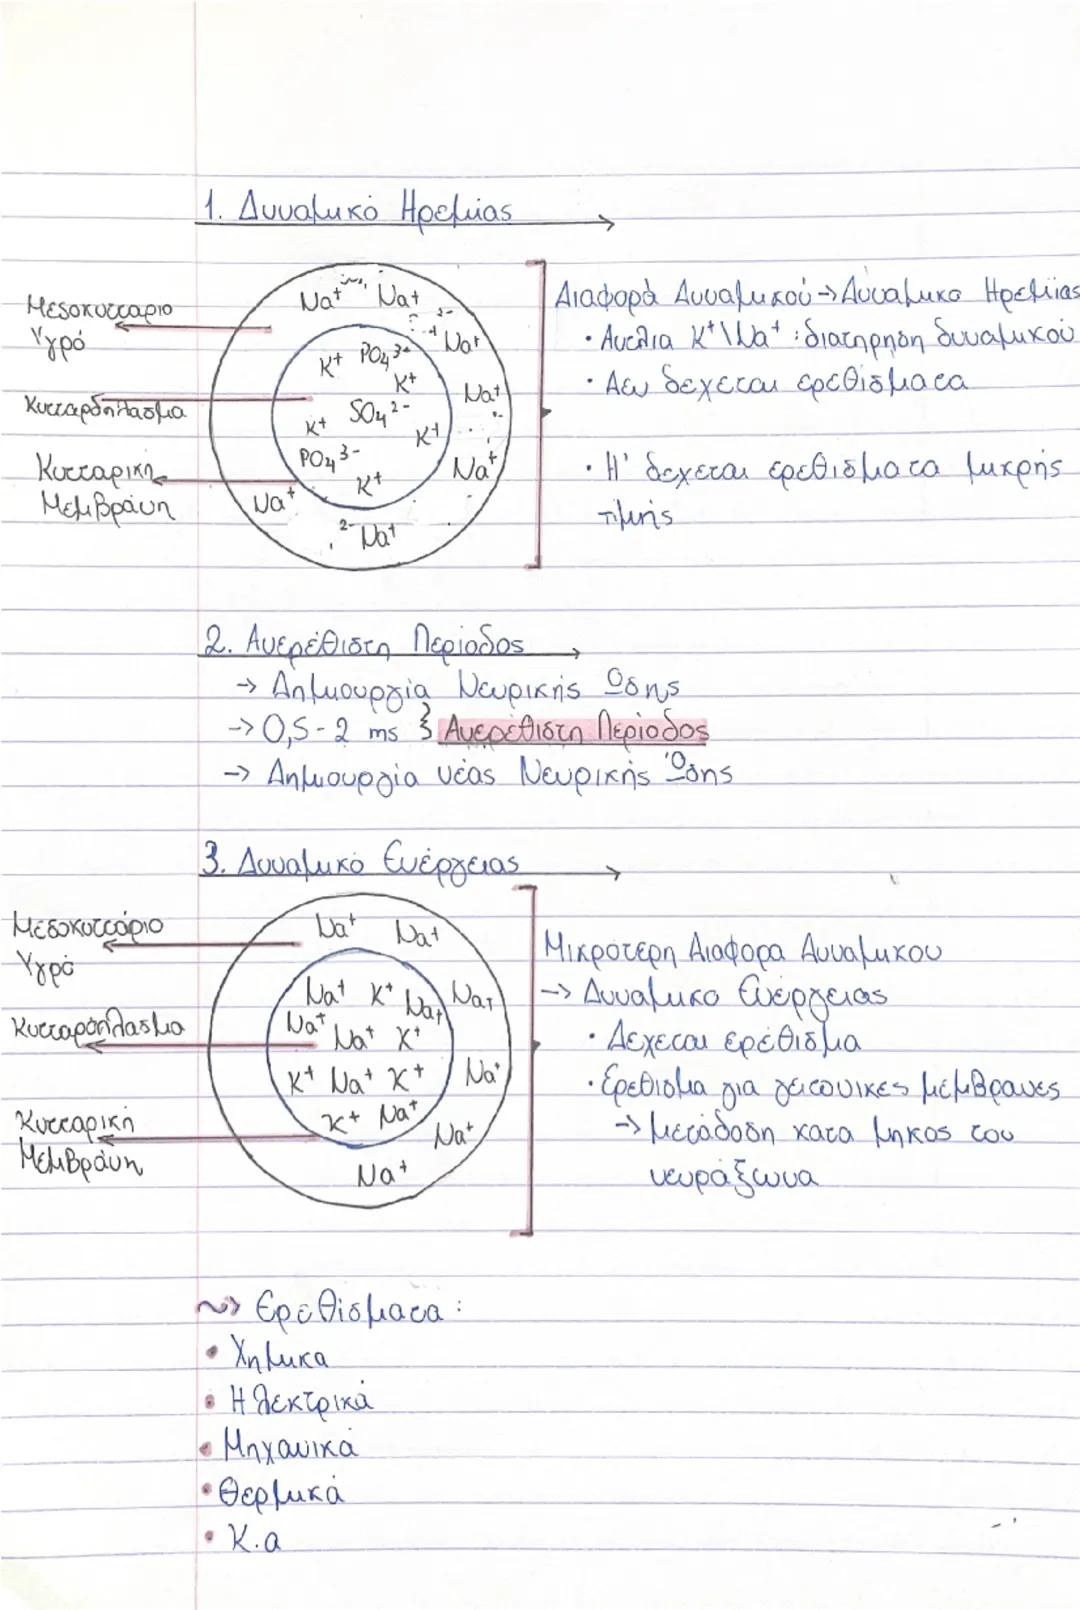 1. Δυναμικό Ηρεμίας
Μεσοκυτταριο
Υγρό
Κυτταρόπλασμα
Κυτταρική
Μεμβράνη
Na⁺ Na⁺
Na⁺
K⁺ PO₄³⁻
K⁺
Na⁺
SO₄²⁻
K⁺ K⁺
PO₄³⁻
Na⁺
K⁺
Na⁺
²⁻ Na⁺
Διαφορά Δυναμικού → Δυναμικο Ηρεμίας
• Αντλια K⁺\Na⁺ : διατηρηση δυναμικού
• Δεν δεχεται ερεθίσματα
• Η' δεχεται ερεθισματα μικρής
τιμής
2. Ανερέθιστη Περίοδος
→ Δημιουργία Νευρικής Ώσης
→ 0,5 - 2 ms } Ανερέθιστη Περίοδος
→ Δημιουργία νέας Νευρικής Ώσης
3. Δυναμικό Ενέργειας
Μεσοκυττάριο
Υγρό
Κυτταρόπλασμα
Κυτταρική
Μεμβράνη
Na⁺ Na⁺
Na⁺ K⁺ Na⁺ Na⁺
Na⁺ Na⁺ K⁺
K⁺ Na⁺ K⁺ Na⁺
K⁺ Na⁺
Na⁺
Na⁺
Μικρότερη Διαφορα Δυναμικου
→ Δυναμικο Ενέργειας
• Δεχεται ερέθισμα
• Ερεθισμα για γειτονικες μεμβρανες
→ μετάδοση κατα μηκος του
νευράξωνα
~> Ερεθίσματα :
• Χημικα
• Ηλεκτρικά
• Μηχανικά
• Θερμικά
• Κ.α